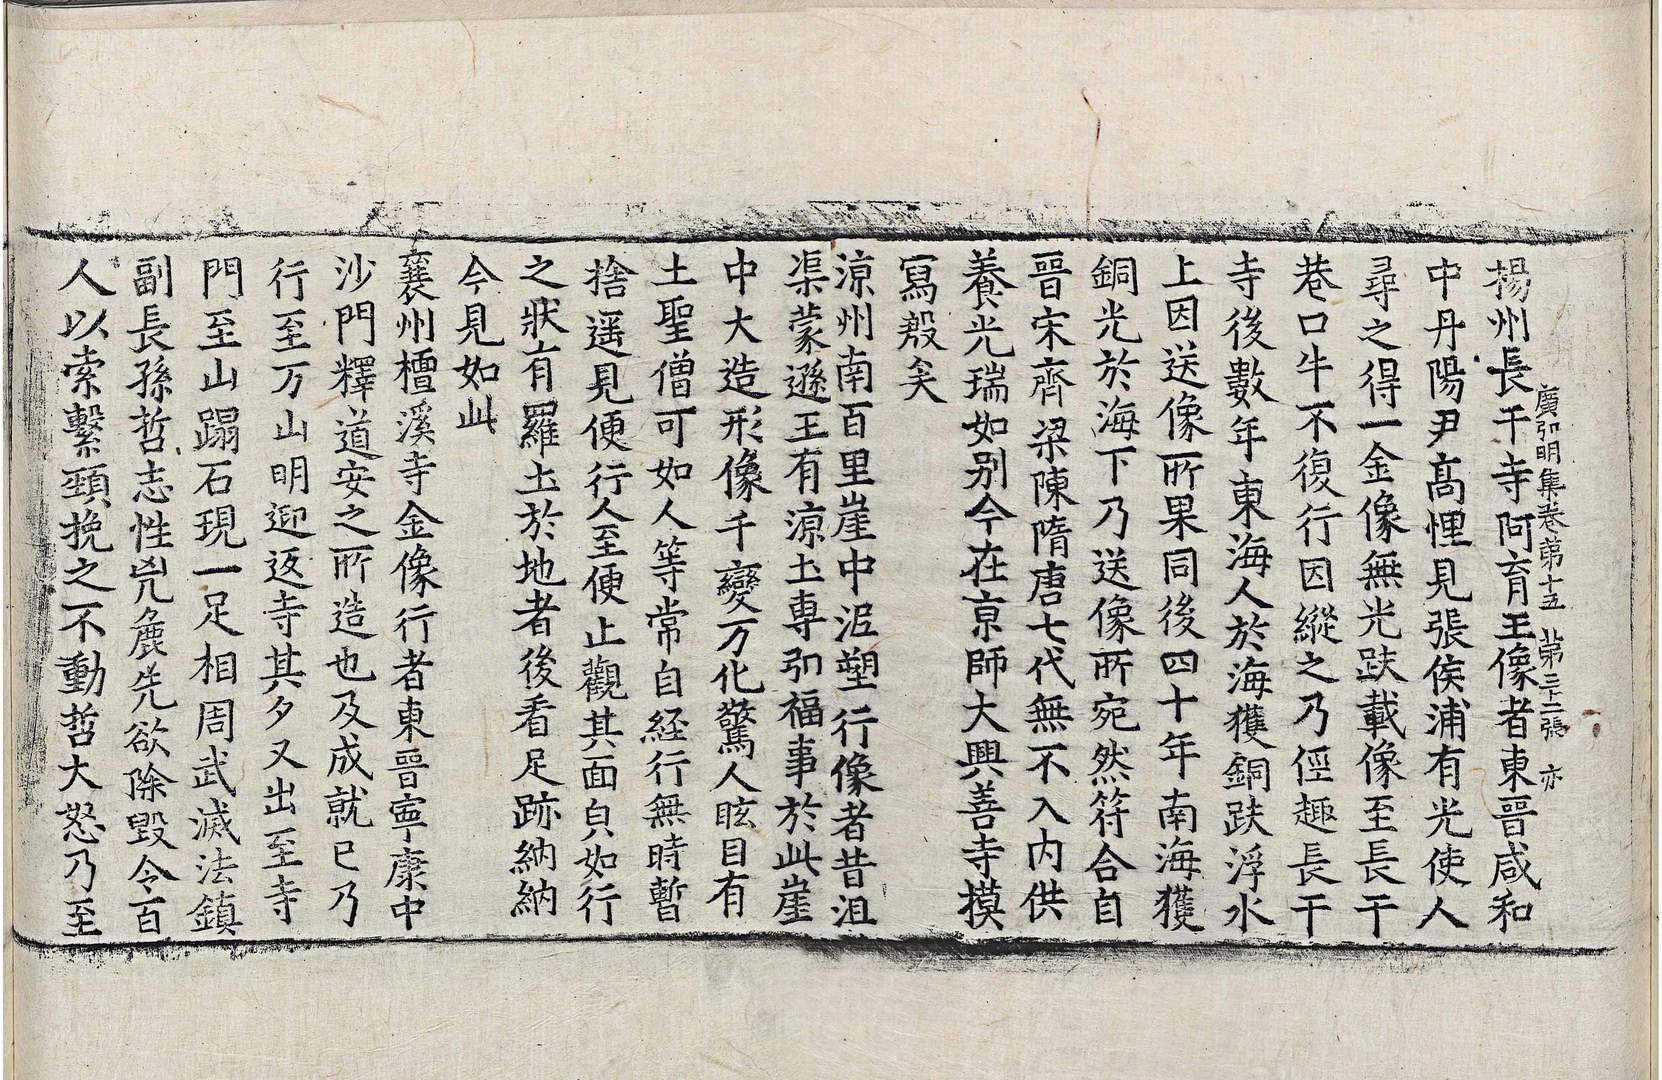 廣弘明集卷第十五　第二十二張　亦
揚州長干寺阿育王像者東晉咸和
中丹陽尹髙悝見張侯浦有光使人
尋之得一金像無光趺載像至長干
巷口牛不復行因縱之乃徑趣長干
寺後數年東海人於海獲銅趺浮水
上因送像所果同後四十年南海獲
銅光於海下乃送像所宛然符合自
晉宋齊梁陳隋唐七代無不入内供
養光瑞如别今在京師大興善寺摸
寫殷矣
涼州南百里崖中泥塑行像者昔沮
渠蒙遜王有涼土專弘福事於此崖
中大造形像千變万化驚人眩目有
土聖僧可如人等常自経行無時暫
捨遥見便行人至便止觀其面皃如行
之狀有羅土於地者後看足跡納納
今見如此
襄州檀溪寺金像行者東晉寧康中
沙門釋道安之所造也及成就已乃
行至万山明迎返寺其夕又出至寺
門至山蹋石現一足相周武滅法鎮
副長孫哲志性兇麁先欲除毀令百
人以索繫頸挽之不動哲大怒乃至